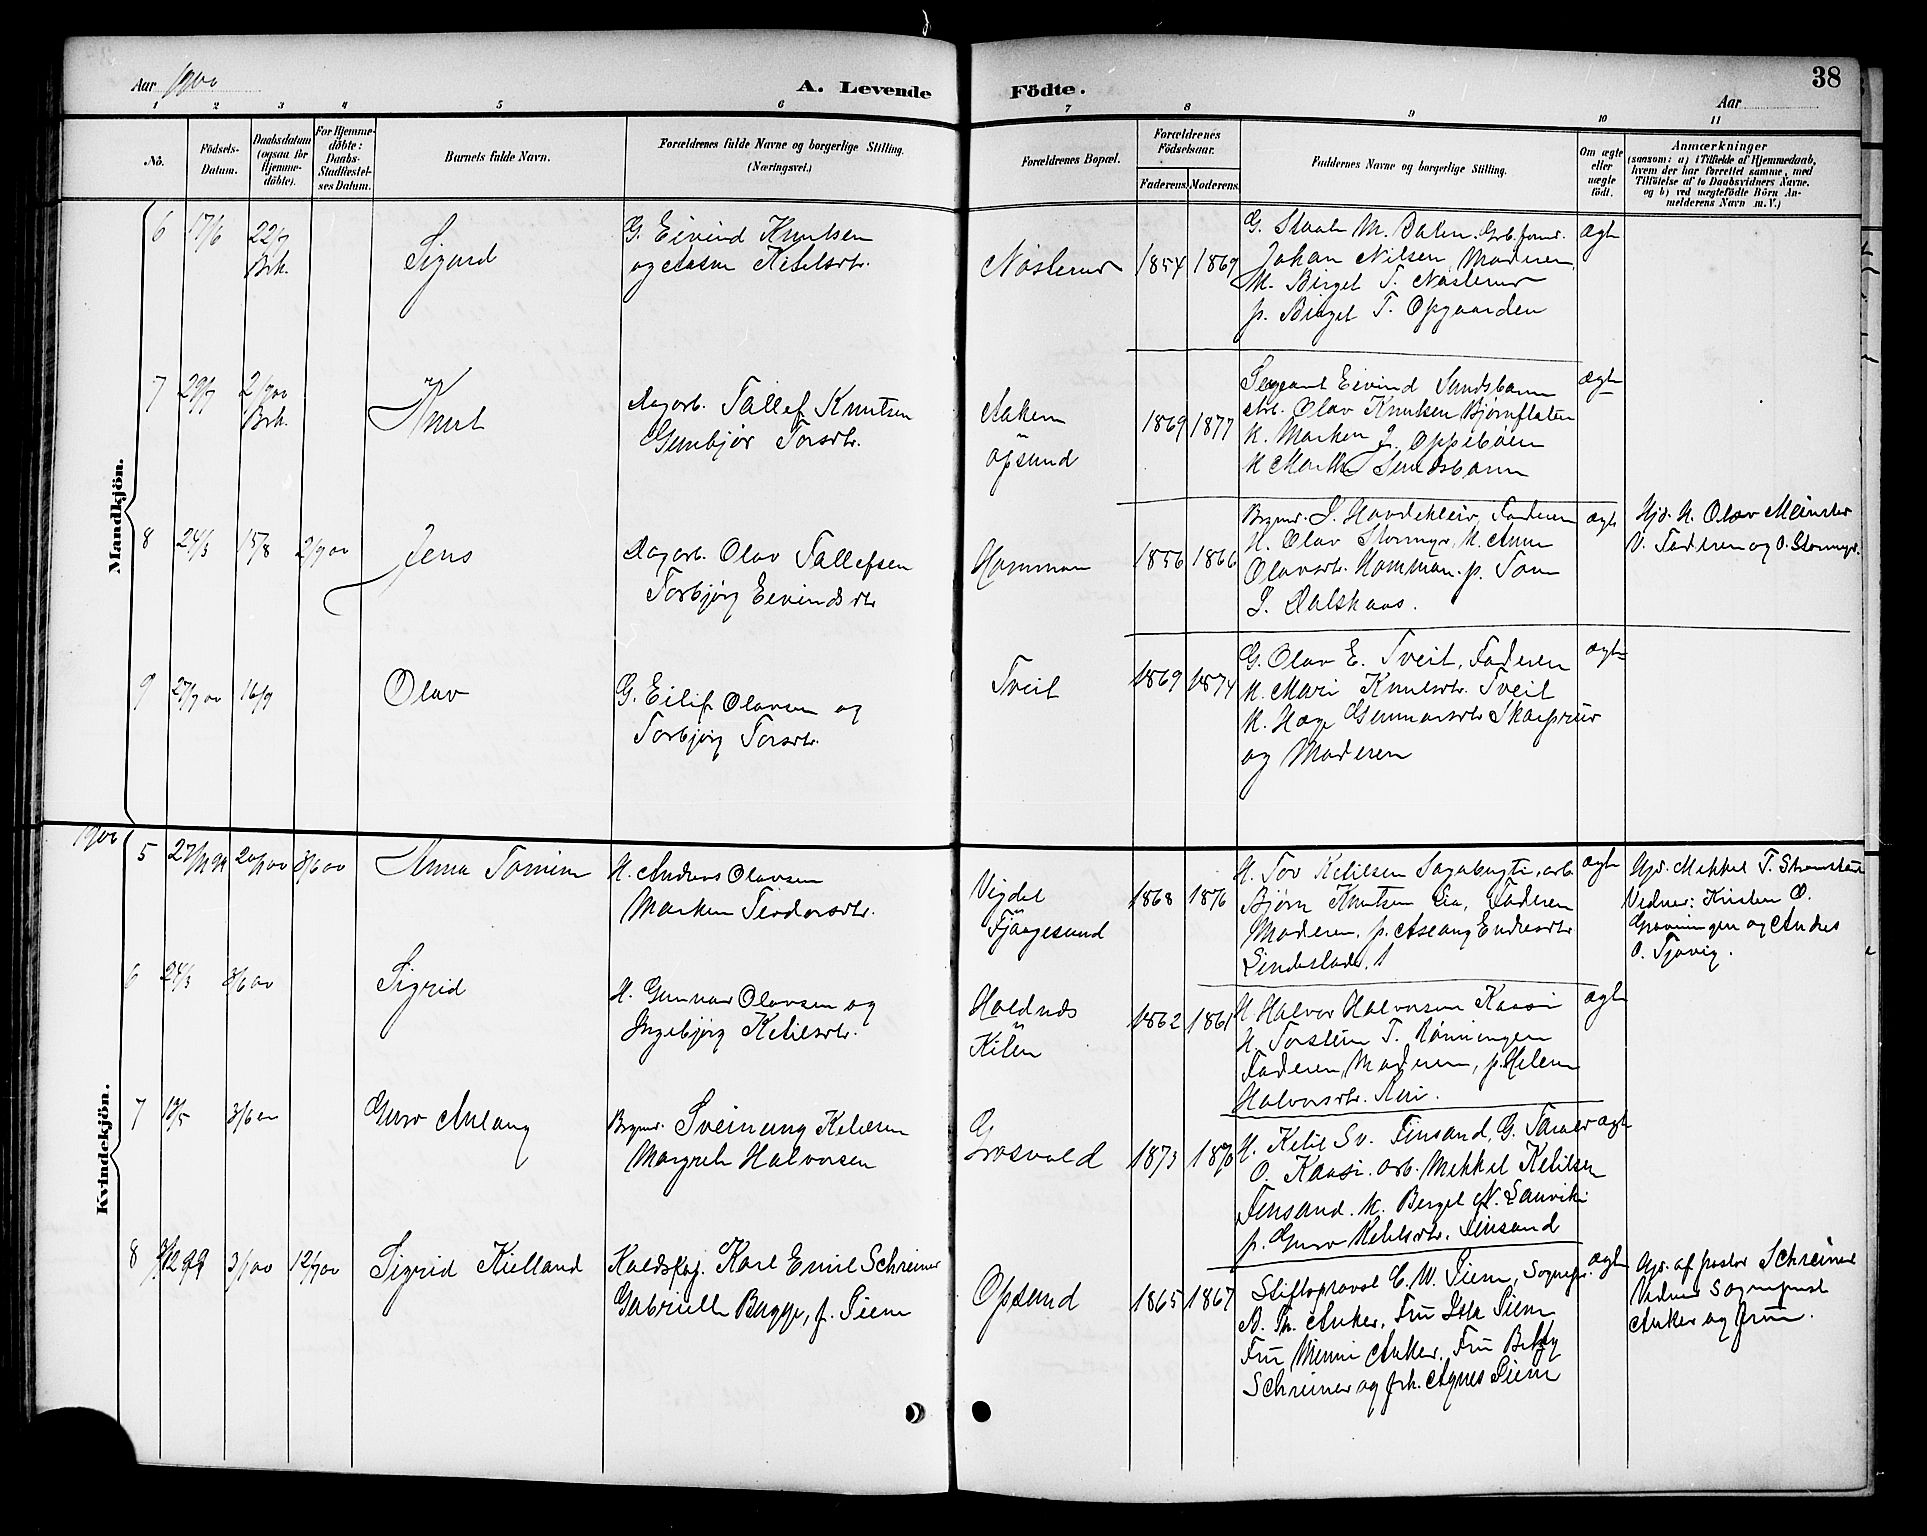 Aar 1900
A. Levende
Födte.
Aar
38
1 2 3 4 5 6 7 8 9 10 11
No.
Födsels-
Datum.
Daabsdatum
(ogsaa for
Hjemme-
döbte).
For Hjemme-
döbte:
Daabs-
Stadfæstel-
ses Datum.
Barnets fulde Navn.
Forældrenes fulde Navne og borgerlige Stilling.
(Næringsvei.)
Forældrenes Bopæl.
Forældrenes
Födselsaar.
Faderens. Moderens.
Faddernes Navne og borgerlige Stilling.
Om ægte
eller
uægte
födt.
Anmærkninger
(saasom: a) i Tilfælde af Hjemmedaab,
hvem der har forrettet samme, med
Tilföielse af to Daabsvidners Navne,
og b) ved uægtefödte Börn An-
melderens Navn m. V.)
Mandkjön.
6 17/6 22/7
Brk.
Sigurd
G. Eivind Knutsen
og Aasne Ketelsdtr.
Naslerud
1854 1869
G. Staale M. Dalen. Grb. formd.
Johan Nilsen, Moderen,
M. Birget T. Naslerud
p. Birget T. Opgaarden
ægte
7 29/7 2/9 00
Brk.
Knut
Dagarb. Tallef Knutsen
Gunbjør Torsdtr.
Aakern
Opsund
1869 1877
Sergeant Eivind Sundsbarm
Arb. Olav Knutsen Bjørnflaten
K. Marken J. Oppebøen
K Marthe Sundsbarm
ægte
8 24/3 15/8 2/9 00
Jens
Dagarb. Olav Tallefsen
Torbjørg Eivindsdtr
Hamman
1856 1866
Bygmr. J. Havdekleiv, Faderen
H. Olav Stormyr, K. Anne
Olavsdtr. Hamman. p. Tone
J. Dalskaas.
ægte
Hjd. H. Olav Meinster
V. Faderen og O. Stormyr.
9 27/7 00 16/9
Olav
G. Eilif Olavsen og
Torbjørg Torsdtr.
Tveit
1869 1874
G. Olav E. Tveit, Faderen
K. Mari Knutsdtr. Tveit
K. Hæge Gunnarsdtr Skarprud
og Moderen
ægte
1900
Kvindekjön.
5 3/6 00
Anna Tomine
H. Anders Olavsen
Marken Teodorsdtr.
Vigdal
Fjågesund
1868 1876
H. Tov Ketilsen Sagabugti, arb.
Bjørn Knutsen Lia, Faderen
Moderen, p. Aslaug Endresdtr
Lindeslad.
ægte
Hjd. Mekkel T. Strømstad
Vidner: Kristen O.
Gravningen og Anders
O. Tjovig.
6 24/3 3/6 00
Sigrid
H. Gunnar Olavsen og
Ingebjørg Ketilsdtr.
Haldnds
Kilen
1862 1861
H Halvor Halvorsen Kaasi
H. Torstein T. Rønningen
Faderen, Moderen, p. Helene
Halvorsdtr. Aasi.
ægte
7 3/6 00
Guro Aslaug
Bygmr. Sveinung Ketilsen
Margreth Halvorsen
Grosvold
1873 1870
H. Ketil Sv. Finsand, G. Tarald
O. Kaasi. arb. Mekkel Ketilsen
Finsand. K. Berget N. Sanviki
p. Guro Ketilsdtr. Finsand
ægte
8 12/7 00
Sigrid Kielland
Kaldskap. Karl Emil Schreiner
Gabrielle Bagge, f. Siem
Opsund
1865 1867
Stiftsprovst C. W. Siem, Sognepr.
N. Th. Anker, Fru Ida Siem
Fru Minni Anker, Fru Betty
Schreiner og frk. Agnes Siem
ægte
Hjd. af pastor Schreiner
Vidner Sogneprest
Anker og frue.